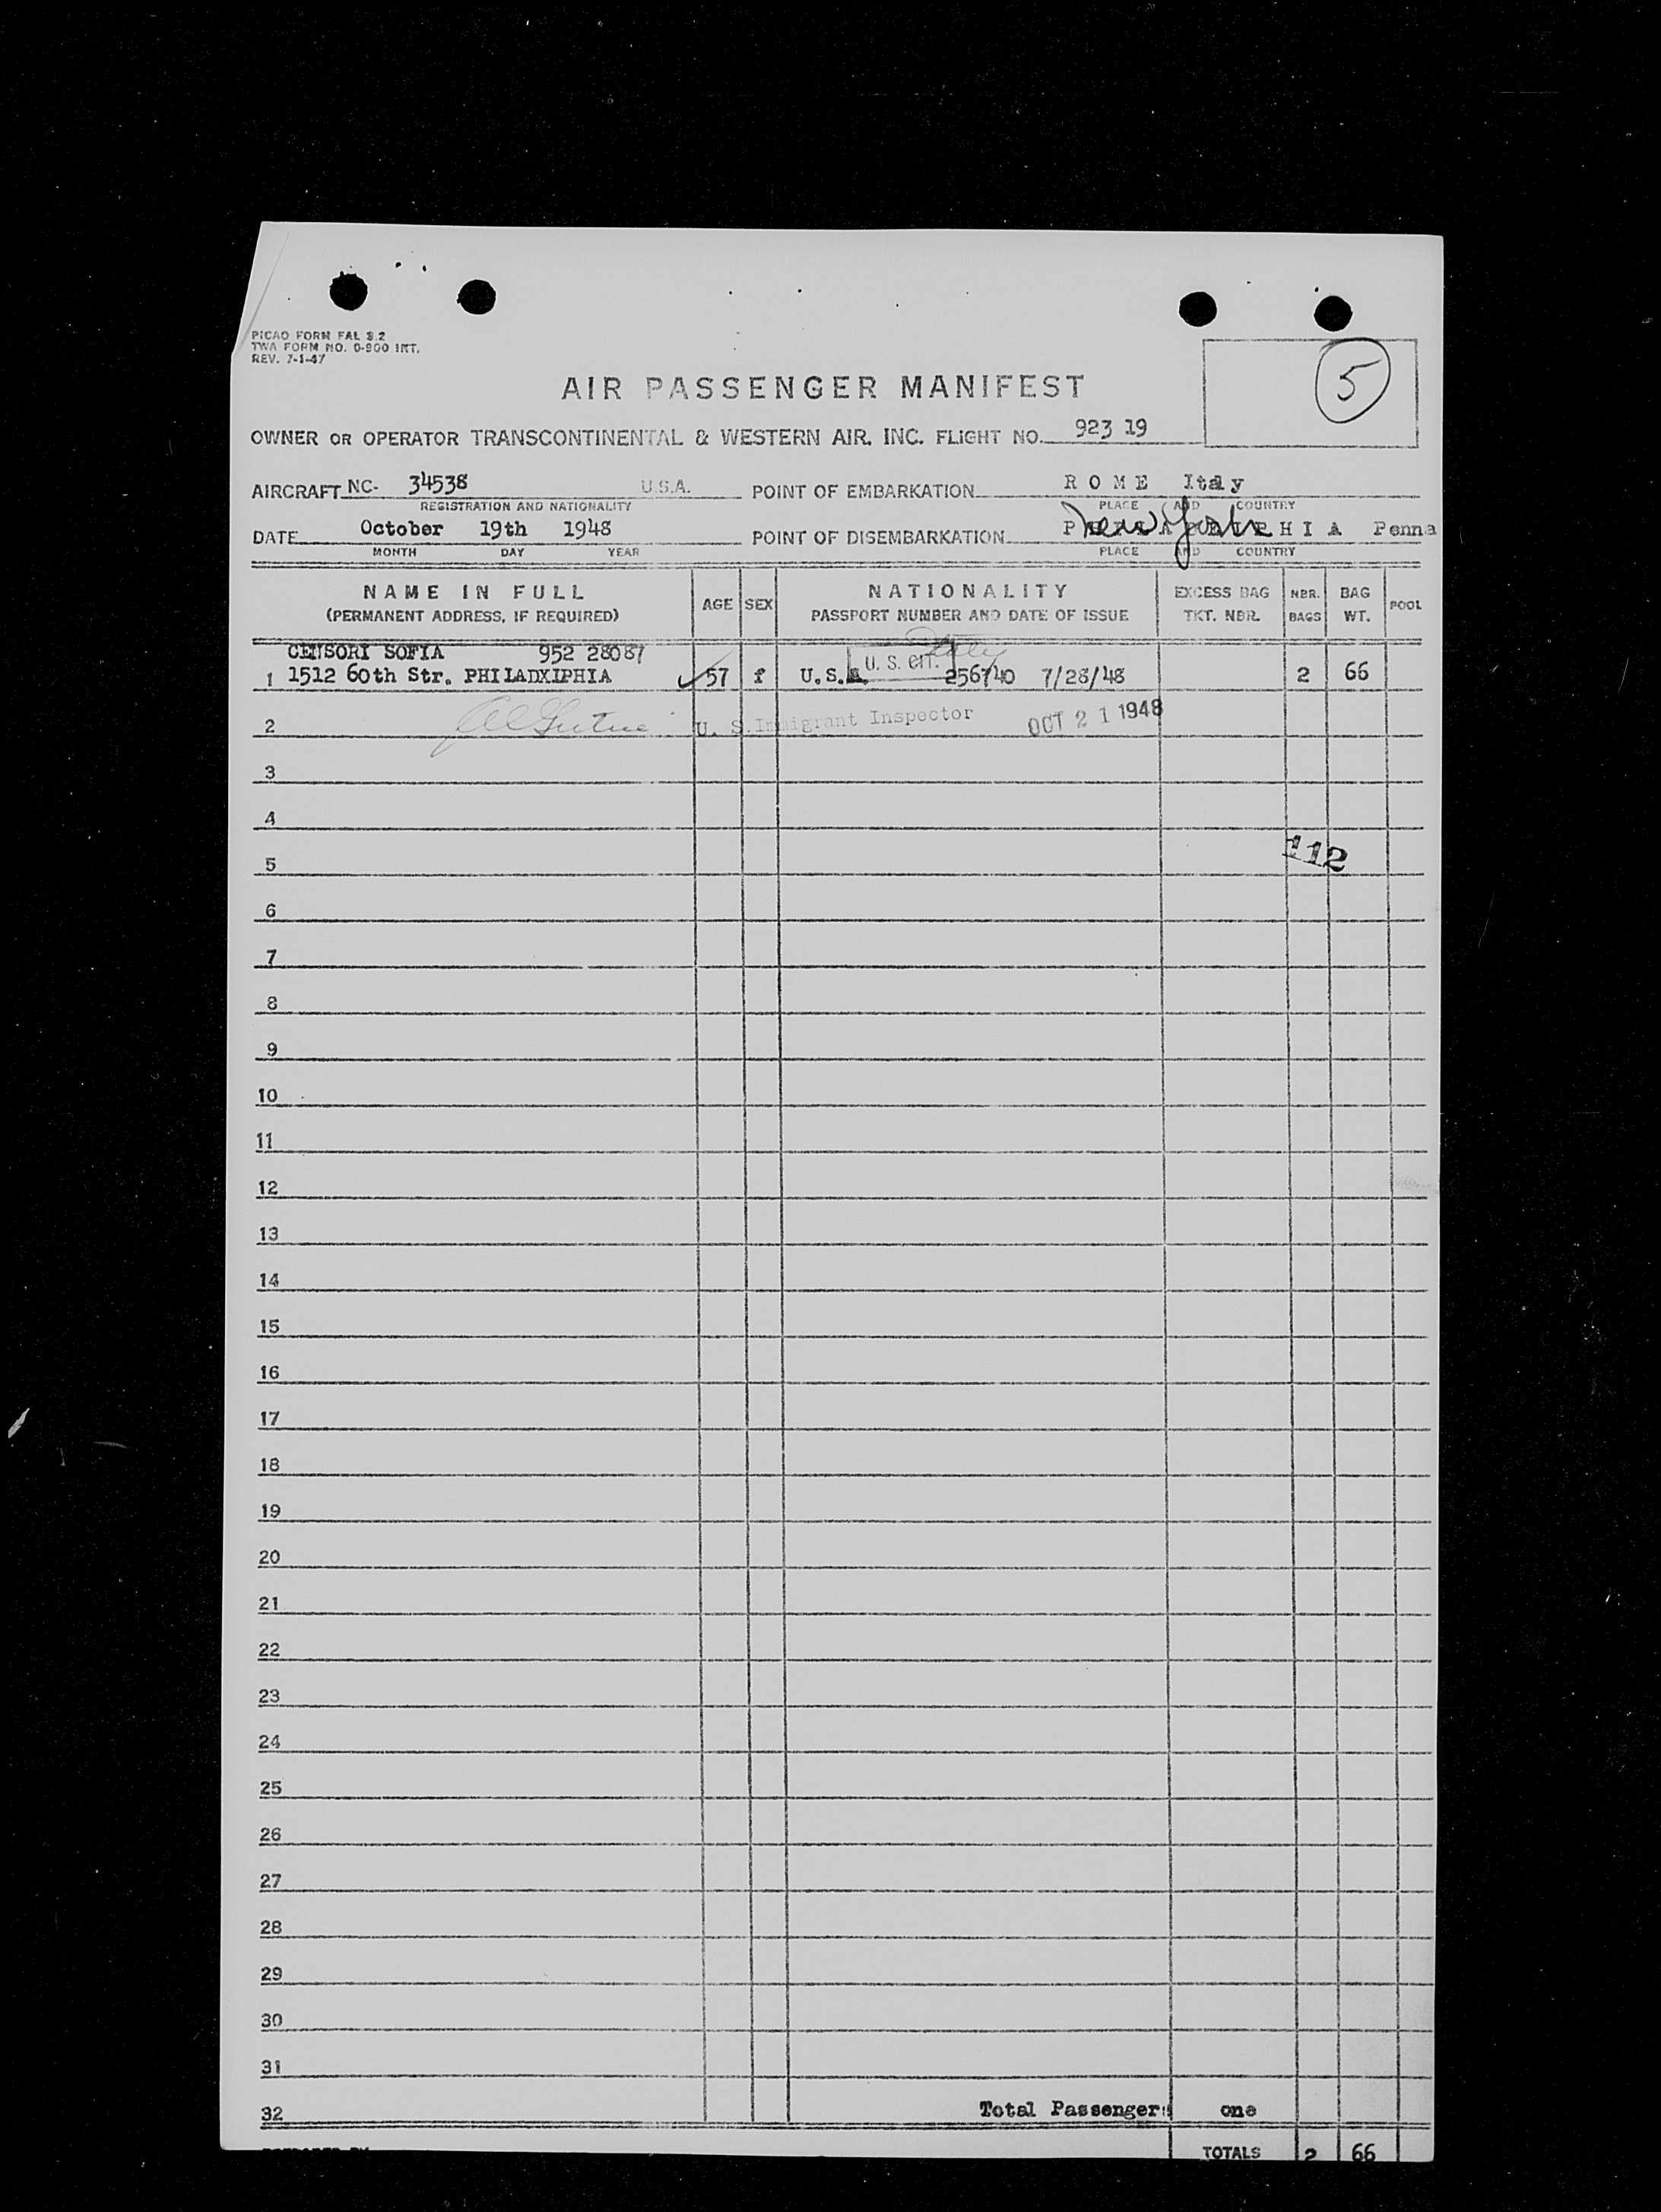 PICAO FORM FAL 8.2
TWA FORM NO. O-900 INT.
REV. 7-1-47
5
AIR PASSENGER MANIFEST
OWNER OR OPERATOR TRANSCONTINENTAL & WESTERN AIR. INC. FLIGHT NO. 923 19
AIRCRAFT NC- 34538 U.S.A. POINT OF EMBARKATION ROME Italy
REGISTRATION AND NATIONALITY PLACE AND COUNTRY
New York
DATE October 19th 1948 POINT OF DISEMBARKATION PHILADELPHIA Penna
MONTH DAY YEAR PLACE AND COUNTRY
NAME IN FULL
(PERMANENT ADDRESS, IF REQUIRED)
AGE
SEX
NATIONALITY
PASSPORT NUMBER AND DATE OF ISSUE
EXCESS BAG
TKT. NBR.
NBR.
BAGS
BAG
WT.
POOL
CENSORI SOFIA 952 28087
Italy
U. S. CIT.
1 1512 60th Str. PHILADXIPHIA 57 f U.S.A. 256740 7/28/48 2 66
2 U. S. Immigrant Inspector OCT 21 1948
3
4
112
5
6
7
8
9
10
11
12
13
14
15
16
17
18
19
20
21
22
23
24
25
26
27
28
29
30
31
32 Total Passengers one
TOTALS 2 66